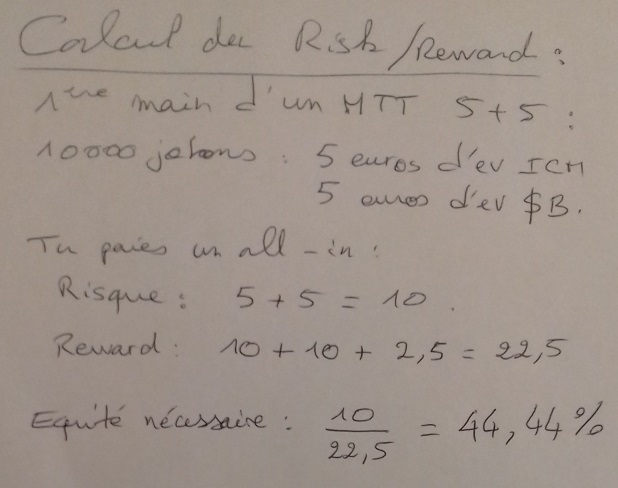 Calcul du Risk/Reward :
1ère main d'un MTT 5+5 :
10000 jetons : 5 euros d'ev ICM
5 euros d'ev $B.
Tu paies un all-in :
Risque : 5 + 5 = 10.
Reward : 10 + 10 + 2,5 = 22,5
Equité nécessaire : 10/22,5 = 44,44%